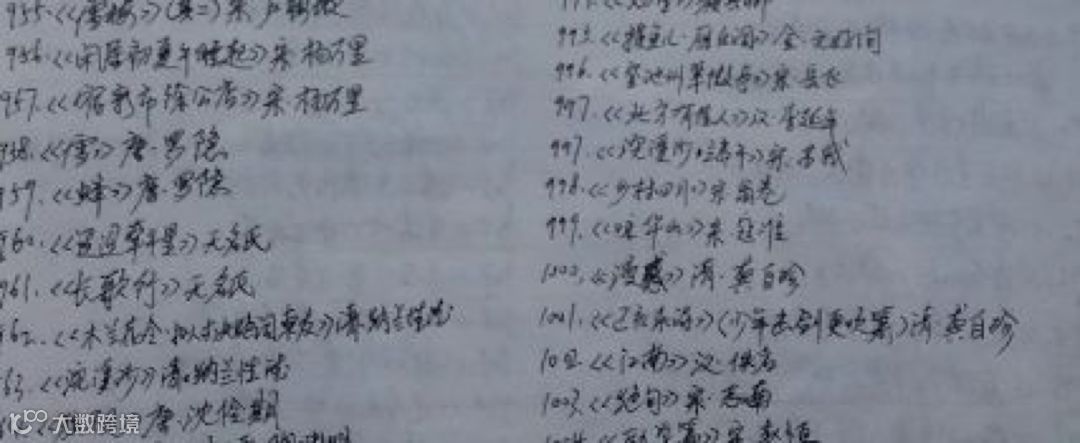 955.《雪梅》(其二)宋·卢梅坡
956.《闲居初夏午睡起》宋·杨万里
957.《宿新市徐公店》宋·杨万里
958.《雪》唐·罗隐
959.《蜂》唐·罗隐
960.《迢迢牵牛星》无名氏
961.《长歌行》无名氏
962.《木兰花令·拟古决绝词柬友》清·纳兰性德
963.《浣溪沙》清·纳兰性德
唐·沈佺期
995.《摸鱼儿·雁丘词》金·元好问
996.《登池州翠微亭》宋·岳飞
997.《北方有佳人》汉·李延年
997.《浣溪沙·端午》宋·苏轼
998.《乡村四月》宋·翁卷
999.《咏华山》宋·寇准
1000.《漫感》清·龚自珍
1001.《己亥杂诗》(少年击剑更吹箫)清·龚自珍
1002.《江南》汉·佚名
1003.《绝句》宋·志南
1004.《劝学篇》宋·赵恒
大数跨境